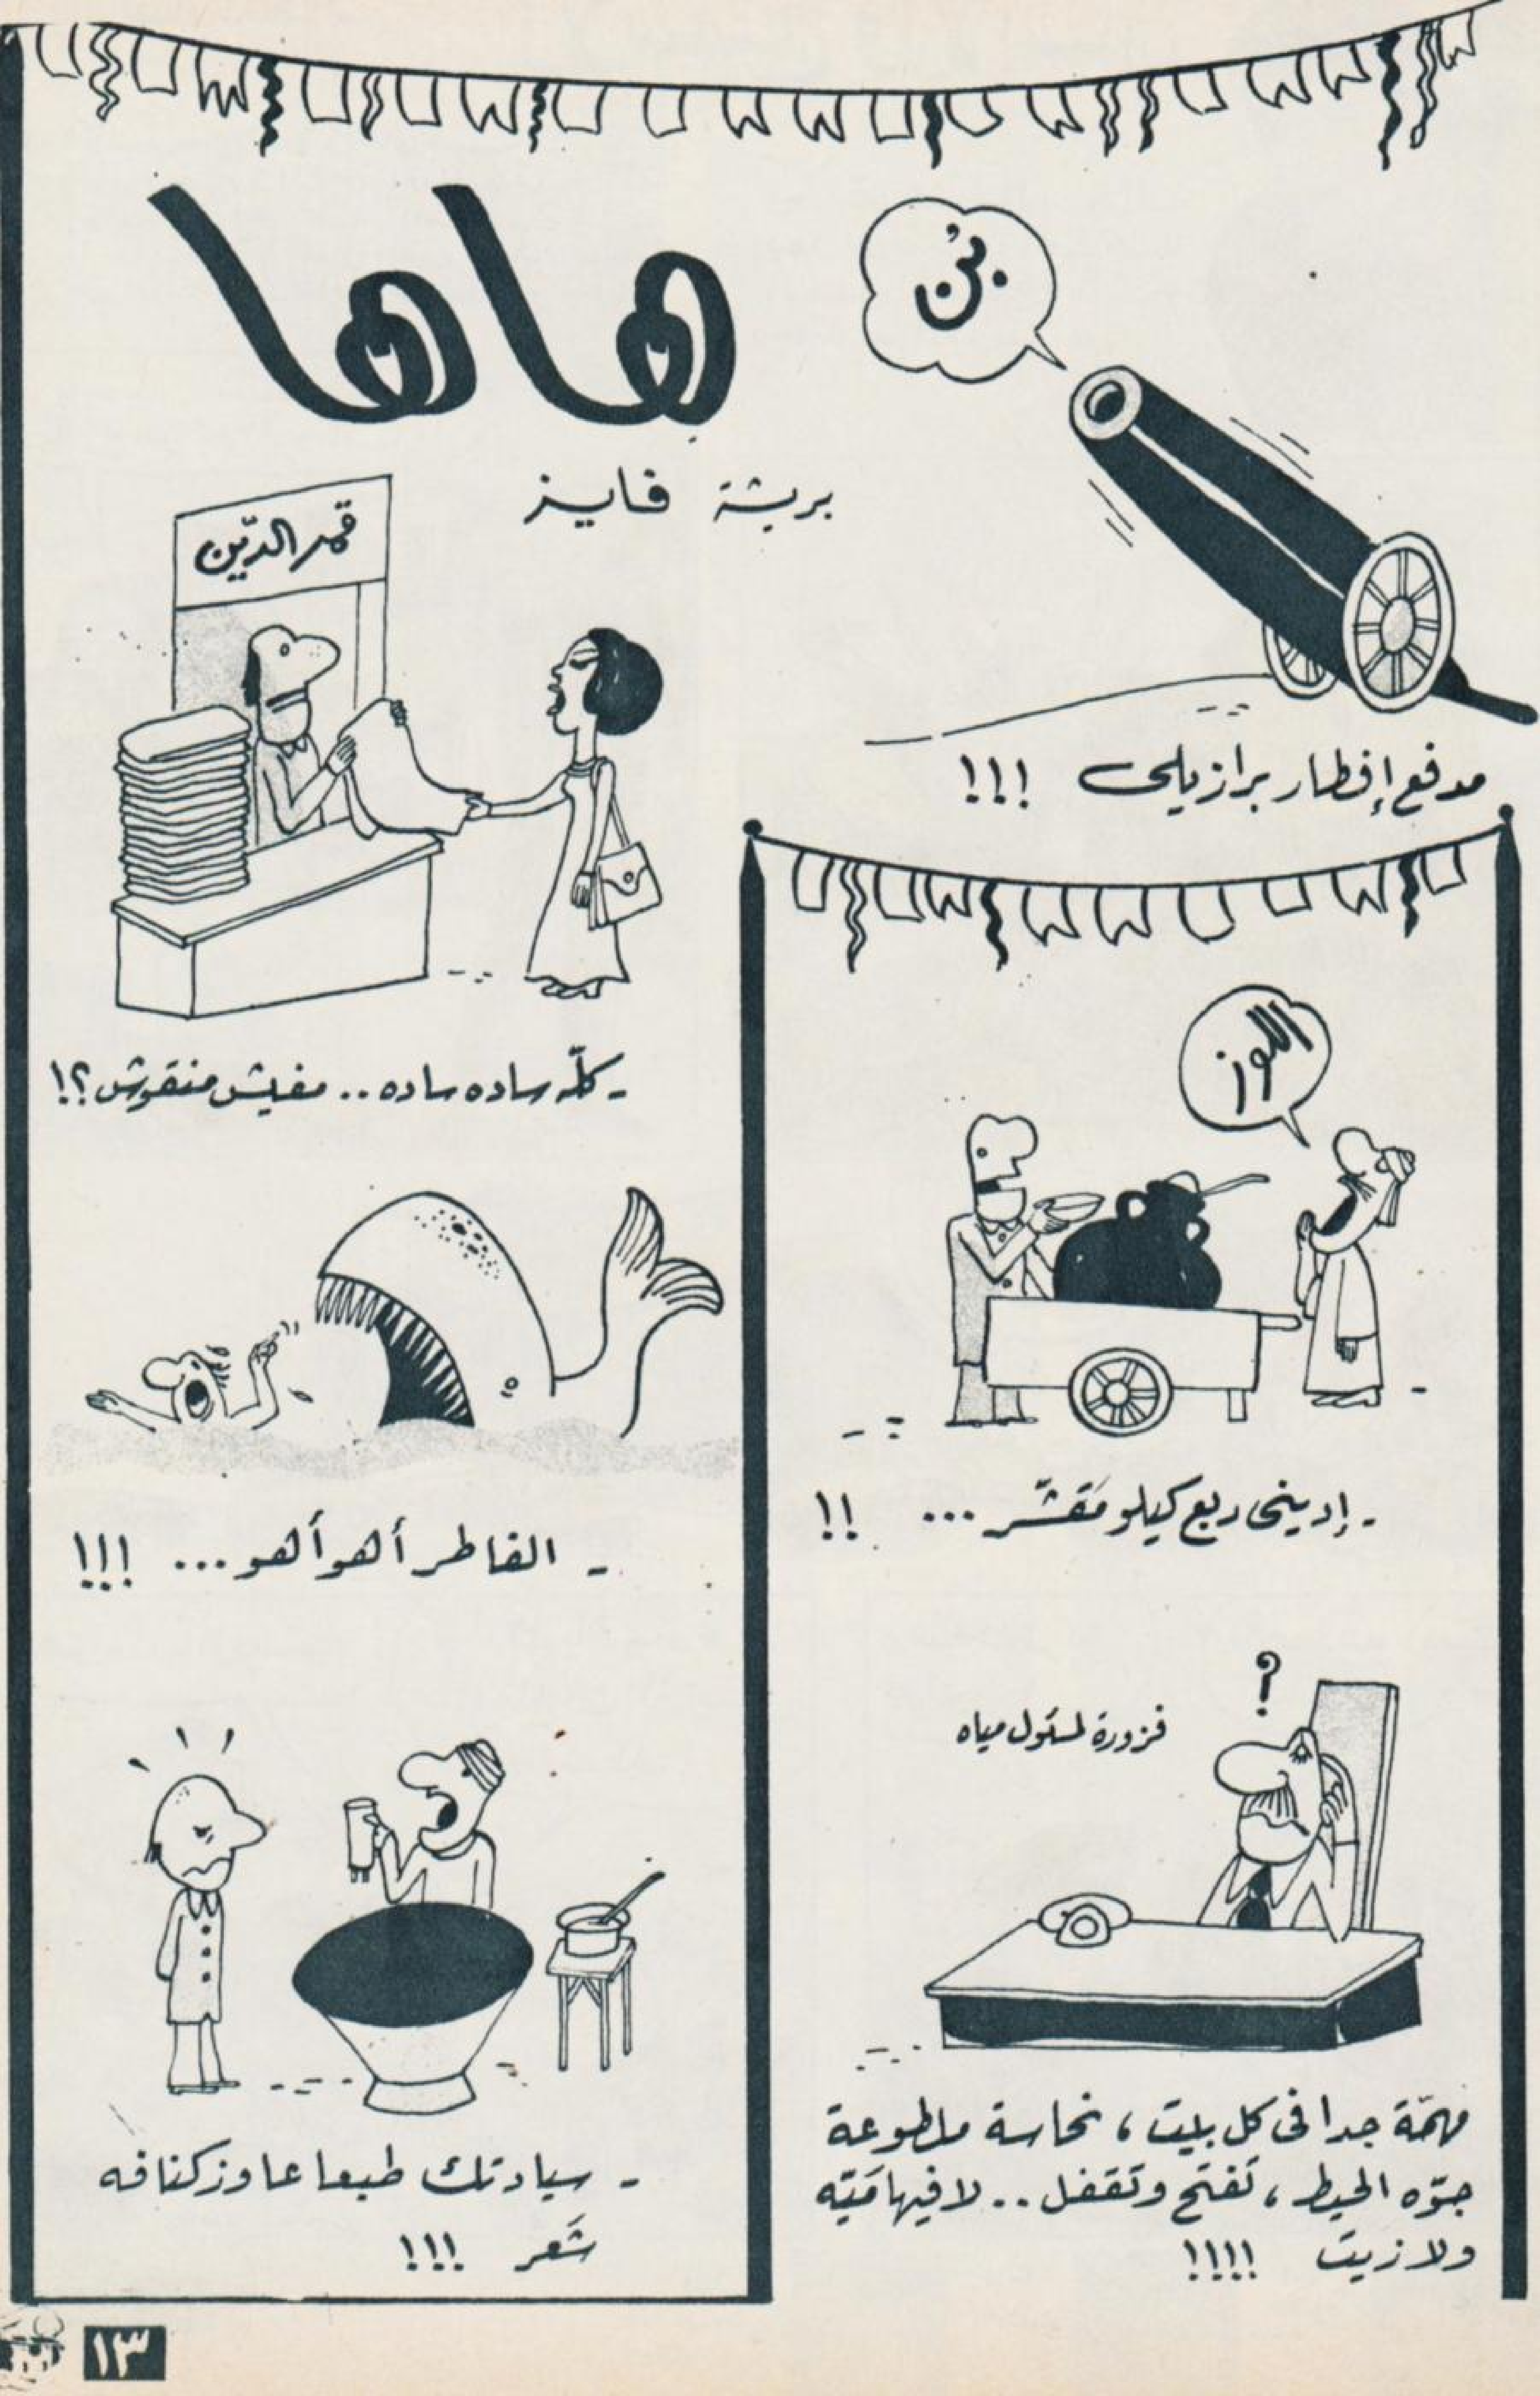 هاها
بريشة فايز
بُن
مدفع إفطار برازيلى !!!
قمر الدّين
- كلّه ساده ساده .. مفيش منقوش ؟!
اللوز
- إدينى ربع كيلو مَقشّر ... !!
- الفاطر أهو أهو ... !!!
فزورة لمسئول مياه
؟
مهمّة جدا فى كل بيت ، نحاسة ملطوعة
جوّه الحيط ، تفتح وتقفل .. لا فيها مَيّه
ولا زيت !!!!
- سيادتك طبعا عاوز كنافه
شَعر !!!
١٣